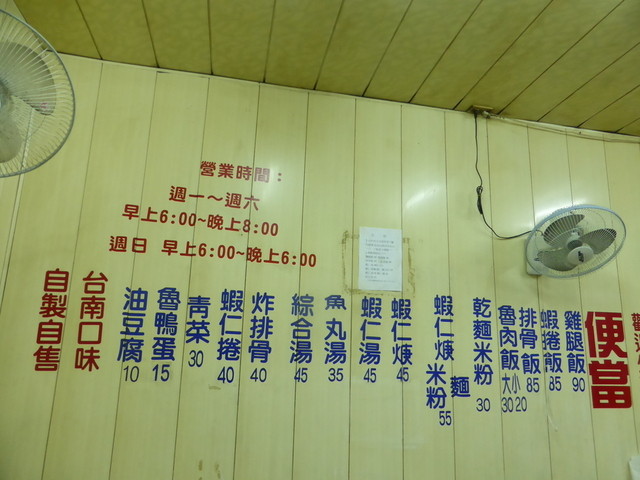 營業時間：
週一～週六
早上6:00~晚上8:00
週日 早上6:00~晚上6:00
便當
雞腿飯 90
蝦捲飯 85
排骨飯 85
魯肉飯 大30 小20
乾麵米粉 30
蝦仁焿 麵 米粉 55
蝦仁焿 45
蝦仁湯 45
魚丸湯 35
綜合湯 45
炸排骨 40
蝦仁捲 40
青菜 30
魯鴨蛋 15
油豆腐 10
台南口味
自製自售